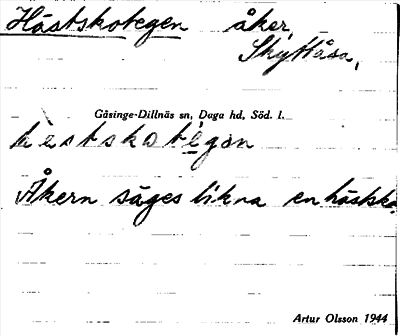 Hästskotegen åker,
Skyttåsa,
Gåsinge-Dillnäs sn, Daga hd, Söd. l.
hèstskotégan
Åkern säges likna en hästsko.
Artur Olsson 1944